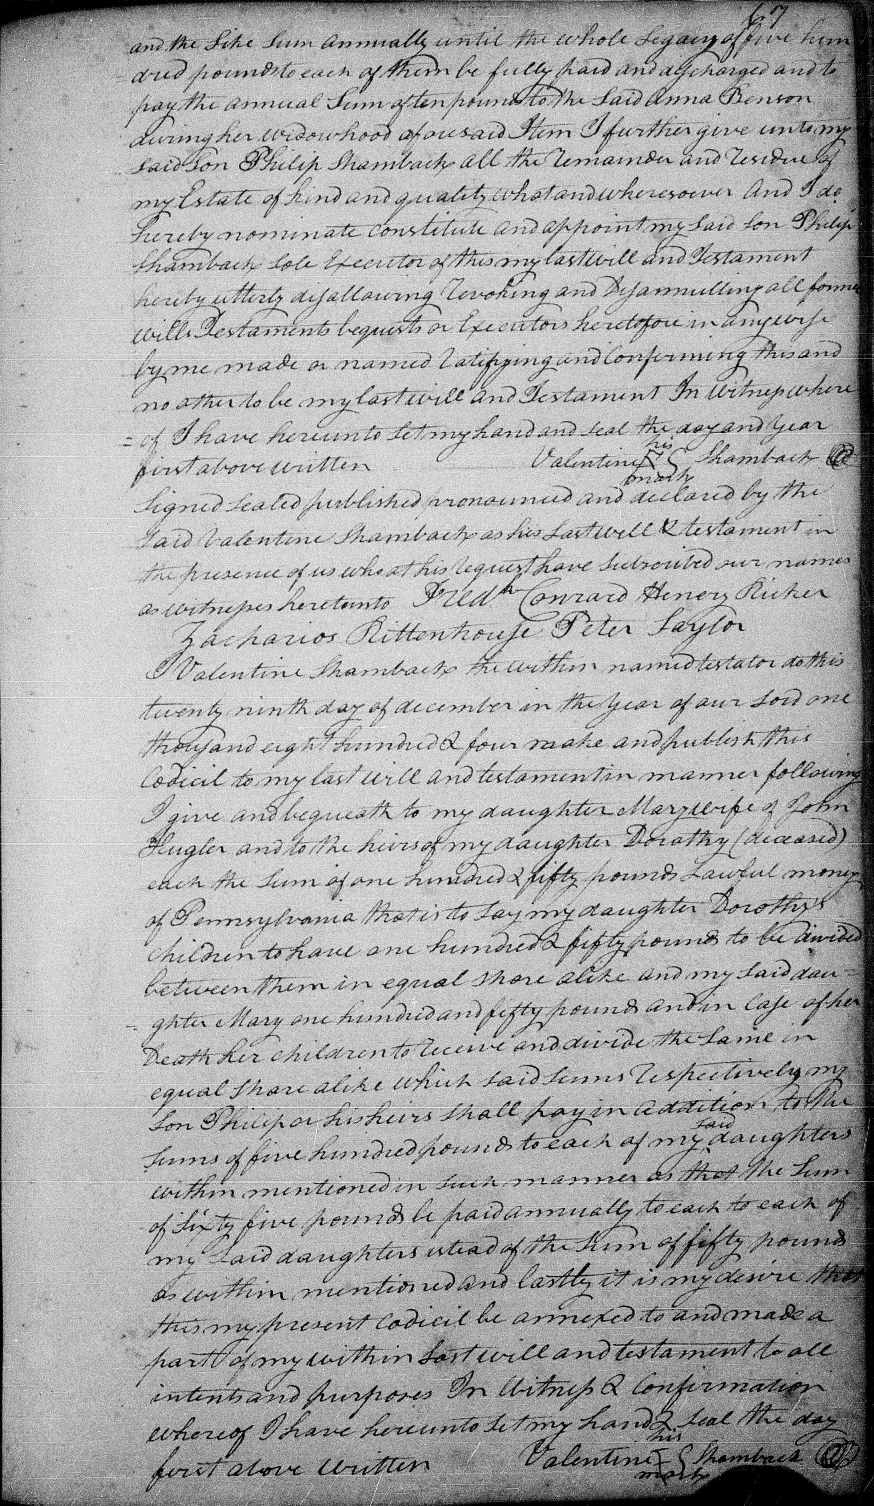 67
and the like Sum annually until the whole legacy of five hun
dred pounds to each of them be fully paid and discharged and to
pay the annual Sum of ten pounds to the Said Anna Benson
during her widowhood aforesaid Item I further give unto my
said son Philip Shambach all the remainder and residue of
my Estate of kind and quality what and wheresoever And I do
hereby nominate constitute and appoint my said Son Philip
Shambach Sole Executor of this my last will and Testament
hereby utterly disallowing revoking and Disannulling all former
wills Testaments bequests or Executors heretofore in anywise
by me made or named ratifying and Confirming this and
no other to be my last will and Testament In witness where
= of I have hereunto Set my hand and seal the day and Year
first above written Valentine his mark Shambach
Signed Sealed published pronounced and declared by the
Said Valentine Shambach as his Last will & testament in
the presence of us who at his request have Subscribed our names
as witnesses hereunto Conrard Henery Richer
Zacharios Rittenhouse Peter Saylor
I Valentine Shambach the within named testator do this
twenty ninth day of december in the Year of our Lord one
thousand eight hundred & four make and publish this
Codicil to my last will and testament in manner following
I give and bequeath to my daughter Mary wife of John
Hugler and to the heirs of my daughter Dorothy (deceased)
each the Sum of one hundred & fifty pounds Lawful money
of Pennsylvania that is to Say my daughter Dorothy's
children to have one hundred & fifty pounds to be divided
between them in equal share alike and my said dau =
ghter Mary one hundred and fifty pounds and in Case of her
Death her children to receive and divide the Same in
equal share alike which said Sums respectively my
Son Philip or his heirs shall pay in addition to the
Sums of five hundred pounds to each of my said daughters
within mentioned in such manner as that the Sum
of Sixty five pounds be paid annually to each to each of
my Said daughters stead of the Sum of fifty pounds
as within mentioned and lastly it is my desire that
this my present Codicil be annexed to and made a
part of my within Last will and testament to all
intents and purposes In Witness & Confirmation
whereof I have hereunto Set my hand & seal the day
first above written Valentine his mark Shambach